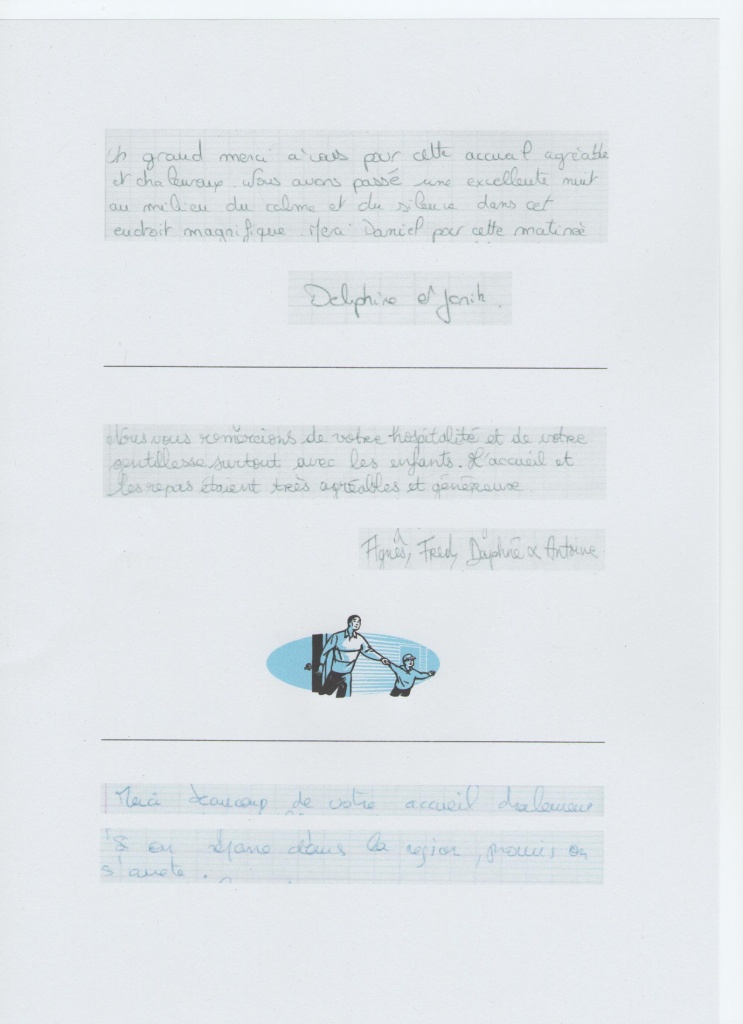 Un grand merci à vous pour cette accueil agréable
et chaleureux. Nous avons passé une excellente nuit
au milieu du calme et du silence dans cet
endroit magnifique. Merci Daniel pour cette matinée
Delphine et
Nous vous remercions de votre hospitalité et de votre
gentillesse surtout avec les enfants. L'accueil et
les repas étaient très agréables et généreux.
Agnès, Fred, Daphné & Antoine
Merci beaucoup de votre accueil chaleureux
Si on repasse dans la région, promis on
s'arrête.